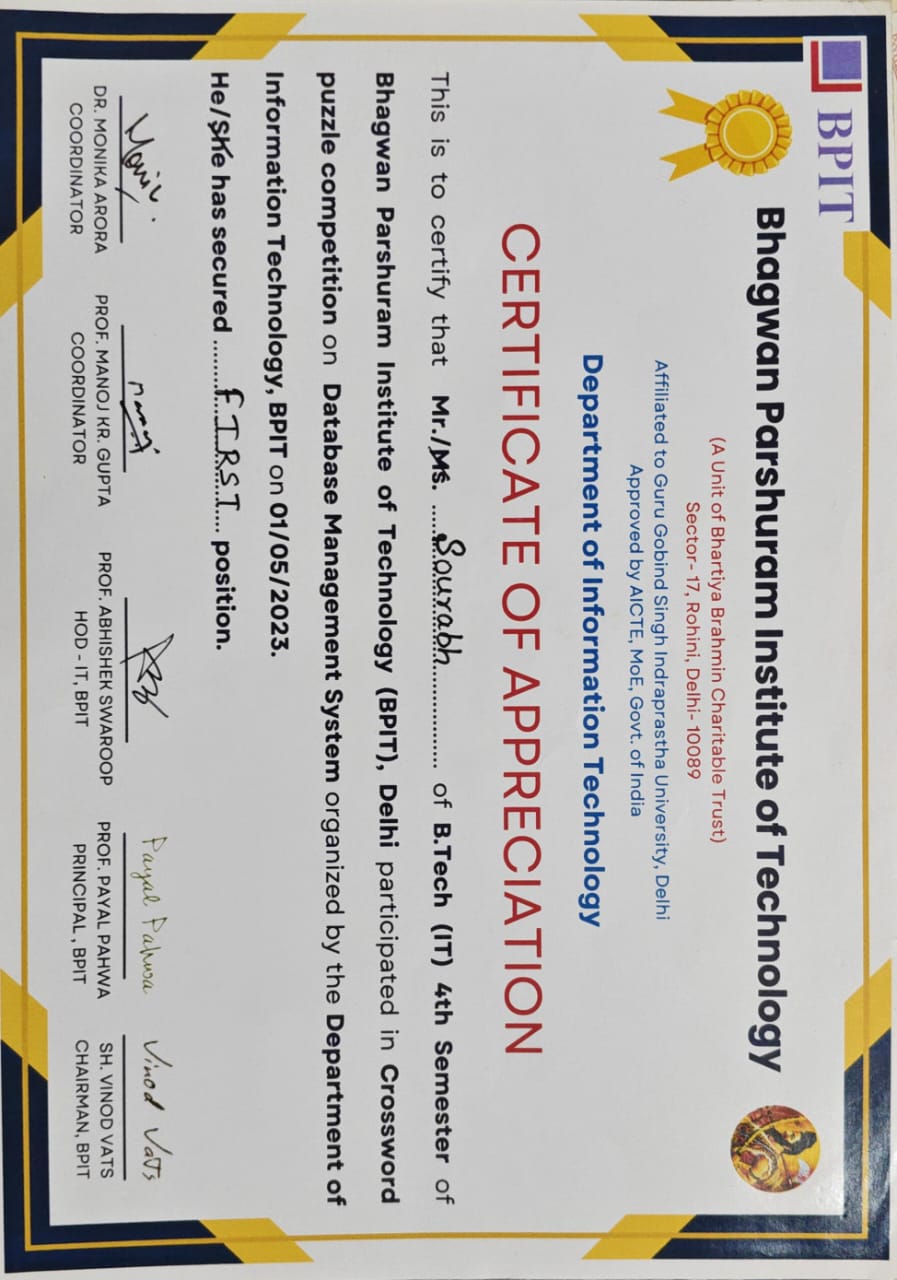 BPIT
Bhagwan Parshuram Institute of Technology
(A Unit of Bhartiya Brahmin Charitable Trust)
Sector- 17, Rohini, Delhi- 10089
Affiliated to Guru Gobind Singh Indraprastha University, Delhi
Approved by AICTE, MoE, Govt. of India
Department of Information Technology
CERTIFICATE OF APPRECIATION
This is to certify that Mr./Ms. Sourabh of B.Tech (IT) 4th Semester of
Bhagwan Parshuram Institute of Technology (BPIT), Delhi participated in Crossword
puzzle competition on Database Management System organized by the Department of
Information Technology, BPIT on 01/05/2023.
He/She has secured FIRST position.
Payal Pahwa Vinod Vats
DR. MONIKA ARORA PROF. MANOJ KR. GUPTA PROF. ABHISHEK SWAROOP PROF. PAYAL PAHWA SH. VINOD VATS
COORDINATOR COORDINATOR HOD - IT, BPIT PRINCIPAL , BPIT CHAIRMAN, BPIT